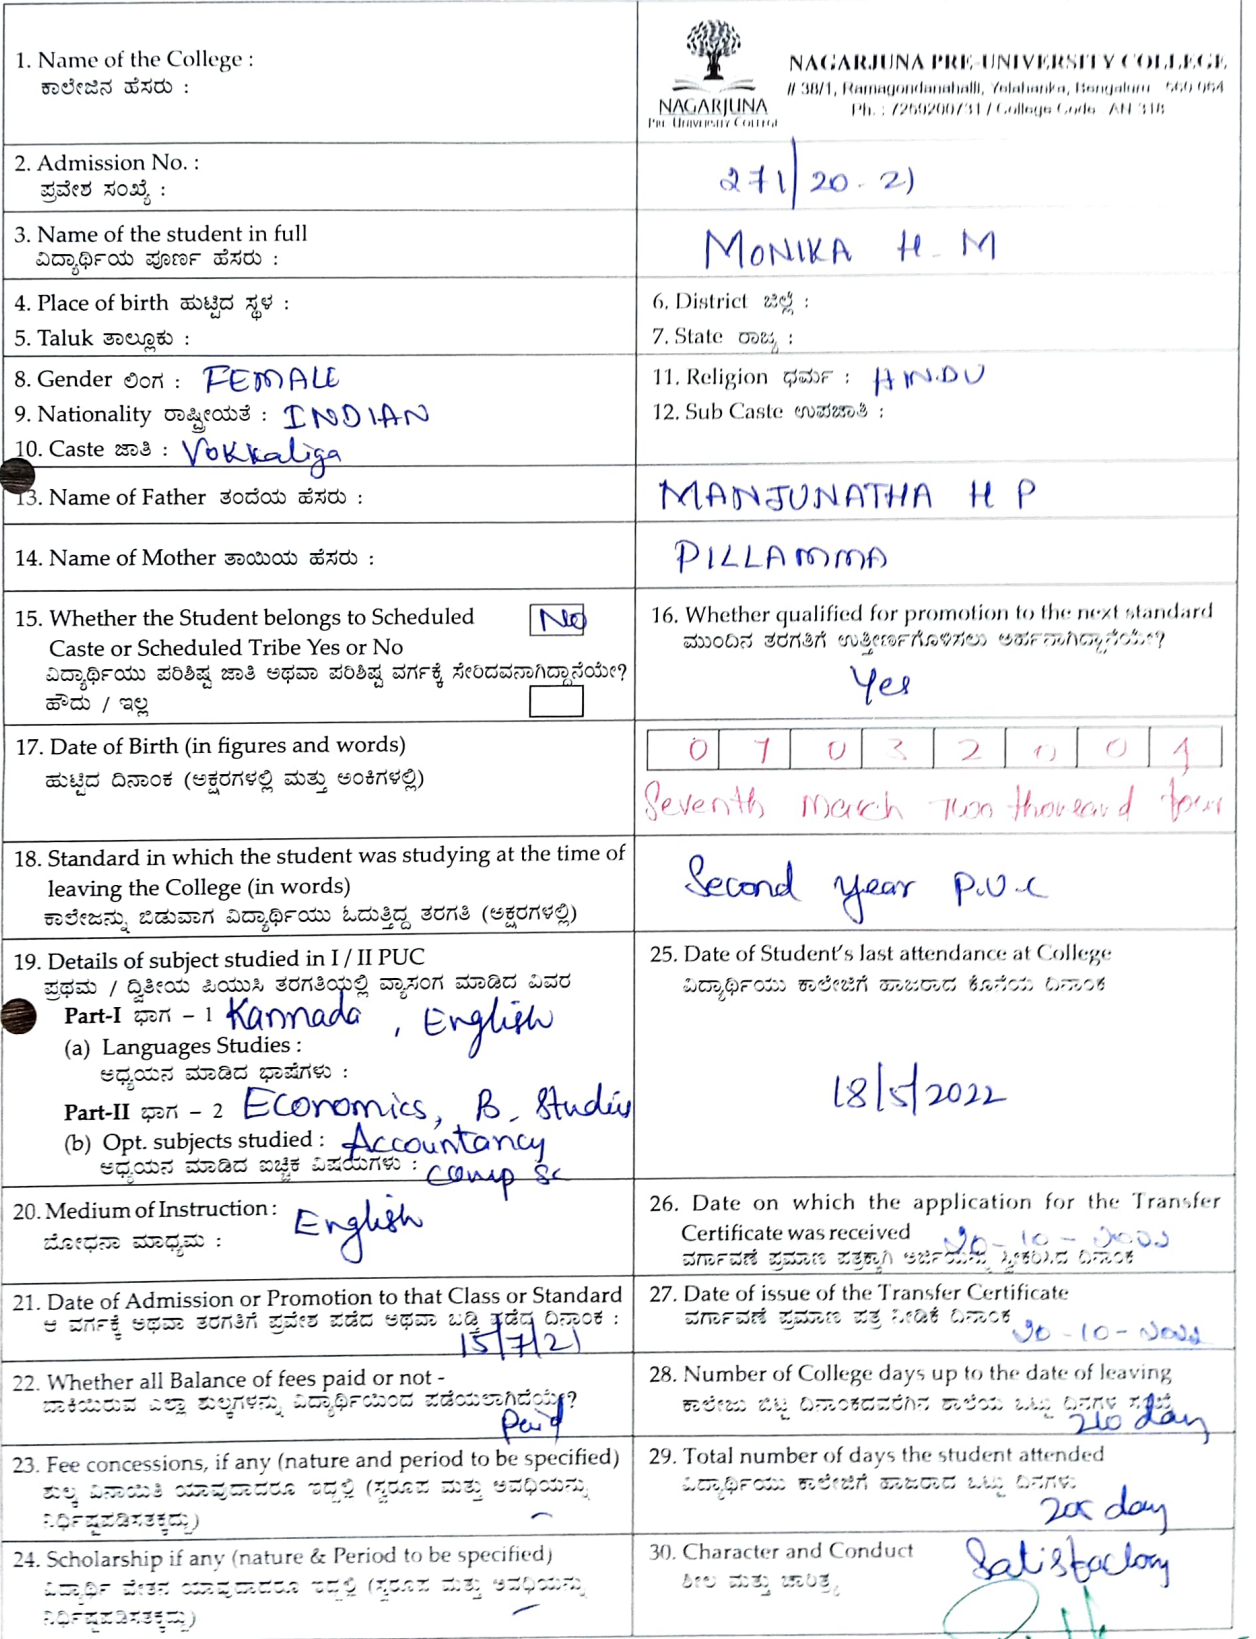 1. Name of the College :
ಕಾಲೇಜಿನ ಹೆಸರು :
NAGARJUNA
PRE UNIVERSITY COLLEGE
NAGARJUNA PRE-UNIVERSITY COLLEGE,
# 38/1, Ramagondanahalli, Yelahanka, Bengaluru 560 064
Ph. : 7259200731 / College Code AN 318
2. Admission No. :
ಪ್ರವೇಶ ಸಂಖ್ಯೆ :
271/20-21
3. Name of the student in full
ವಿದ್ಯಾರ್ಥಿಯ ಪೂರ್ಣ ಹೆಸರು :
MONIKA H-M
4. Place of birth ಹುಟ್ಟಿದ ಸ್ಥಳ :
5. Taluk ತಾಲ್ಲೂಕು :
6. District ಜಿಲ್ಲೆ :
7. State ರಾಜ್ಯ :
8. Gender ಲಿಂಗ : FEMALE
9. Nationality ರಾಷ್ಟ್ರೀಯತೆ : INDIAN
10. Caste ಜಾತಿ : Vokkaliga
11. Religion ಧರ್ಮ : HINDU
12. Sub Caste ಉಪಜಾತಿ :
13. Name of Father ತಂದೆಯ ಹೆಸರು :
MANJUNATHA H P
14. Name of Mother ತಾಯಿಯ ಹೆಸರು :
PILLAMMA
15. Whether the Student belongs to Scheduled
Caste or Scheduled Tribe Yes or No
No
ವಿದ್ಯಾರ್ಥಿಯು ಪರಿಶಿಷ್ಟ ಜಾತಿ ಅಥವಾ ಪರಿಶಿಷ್ಟ ವರ್ಗಕ್ಕೆ ಸೇರಿದವನಾಗಿದ್ದಾನೆಯೇ?
ಹೌದು / ಇಲ್ಲ
16. Whether qualified for promotion to the next standard
ಮುಂದಿನ ತರಗತಿಗೆ ಉತ್ತೀರ್ಣಗೊಳಿಸಲು ಅರ್ಹನಾಗಿದ್ದಾನೆಯೇ?
Yes
17. Date of Birth (in figures and words)
ಹುಟ್ಟಿದ ದಿನಾಂಕ (ಅಕ್ಷರಗಳಲ್ಲಿ ಮತ್ತು ಅಂಕಿಗಳಲ್ಲಿ)
0 7 0 3 2 0 0 4
Seventh March Two thousand four
18. Standard in which the student was studying at the time of
leaving the College (in words)
ಕಾಲೇಜನ್ನು ಬಿಡುವಾಗ ವಿದ್ಯಾರ್ಥಿಯು ಓದುತ್ತಿದ್ದ ತರಗತಿ (ಅಕ್ಷರಗಳಲ್ಲಿ)
Second year P.U.C
19. Details of subject studied in I / II PUC
ಪ್ರಥಮ / ದ್ವಿತೀಯ ಪಿಯುಸಿ ತರಗತಿಯಲ್ಲಿ ವ್ಯಾಸಂಗ ಮಾಡಿದ ವಿವರ
Part-I ಭಾಗ – 1 Kannada , English
(a) Languages Studies :
ಅಧ್ಯಯನ ಮಾಡಿದ ಭಾಷೆಗಳು :
Part-II ಭಾಗ – 2 Economics, B. Studies
(b) Opt. subjects studied : Accountancy
ಅಧ್ಯಯನ ಮಾಡಿದ ಐಚ್ಛಿಕ ವಿಷಯಗಳು : Comp Sc
25. Date of Student's last attendance at College
ವಿದ್ಯಾರ್ಥಿಯು ಕಾಲೇಜಿಗೆ ಹಾಜರಾದ ಕೊನೆಯ ದಿನಾಂಕ
18/5/2022
20. Medium of Instruction : English
ಬೋಧನಾ ಮಾಧ್ಯಮ :
26. Date on which the application for the Transfer
Certificate was received 20-10-2022
ವರ್ಗಾವಣೆ ಪ್ರಮಾಣ ಪತ್ರಕ್ಕಾಗಿ ಅರ್ಜಿಯನ್ನು ಸ್ವೀಕರಿಸಿದ ದಿನಾಂಕ
21. Date of Admission or Promotion to that Class or Standard
ಆ ವರ್ಗಕ್ಕೆ ಅಥವಾ ತರಗತಿಗೆ ಪ್ರವೇಶ ಪಡೆದ ಅಥವಾ ಬಡ್ತಿ ಪಡೆದ ದಿನಾಂಕ :
15/7/21
27. Date of issue of the Transfer Certificate
ವರ್ಗಾವಣೆ ಪ್ರಮಾಣ ಪತ್ರ ನೀಡಿಕೆ ದಿನಾಂಕ 20-10-2022
22. Whether all Balance of fees paid or not -
ಬಾಕಿಯಿರುವ ಎಲ್ಲಾ ಶುಲ್ಕಗಳನ್ನು ವಿದ್ಯಾರ್ಥಿಯಿಂದ ಪಡೆಯಲಾಗಿದೆಯೇ?
Paid
28. Number of College days up to the date of leaving
ಕಾಲೇಜು ಬಿಟ್ಟ ದಿನಾಂಕದವರೆಗಿನ ಶಾಲೆಯ ಒಟ್ಟು ದಿನಗಳ ಸಂಖ್ಯೆ
210 day
23. Fee concessions, if any (nature and period to be specified)
ಶುಲ್ಕ ವಿನಾಯಿತಿ ಯಾವುದಾದರೂ ಇದ್ದಲ್ಲಿ (ಸ್ವರೂಪ ಮತ್ತು ಅವಧಿಯನ್ನು
ನಿರ್ಧಿಷ್ಟಪಡಿಸತಕ್ಕದ್ದು) –
29. Total number of days the student attended
ವಿದ್ಯಾರ್ಥಿಯು ಕಾಲೇಜಿಗೆ ಹಾಜರಾದ ಒಟ್ಟು ದಿನಗಳು
day
24. Scholarship if any (nature & Period to be specified)
ವಿದ್ಯಾರ್ಥಿ ವೇತನ ಯಾವುದಾದರೂ ಇದ್ದಲ್ಲಿ (ಸ್ವರೂಪ ಮತ್ತು ಅವಧಿಯನ್ನು
ನಿರ್ಧಿಷ್ಟಪಡಿಸತಕ್ಕದ್ದು) –
30. Character and Conduct
ಶೀಲ ಮತ್ತು ಚಾರಿತ್ರ್ಯ
Satisfactory